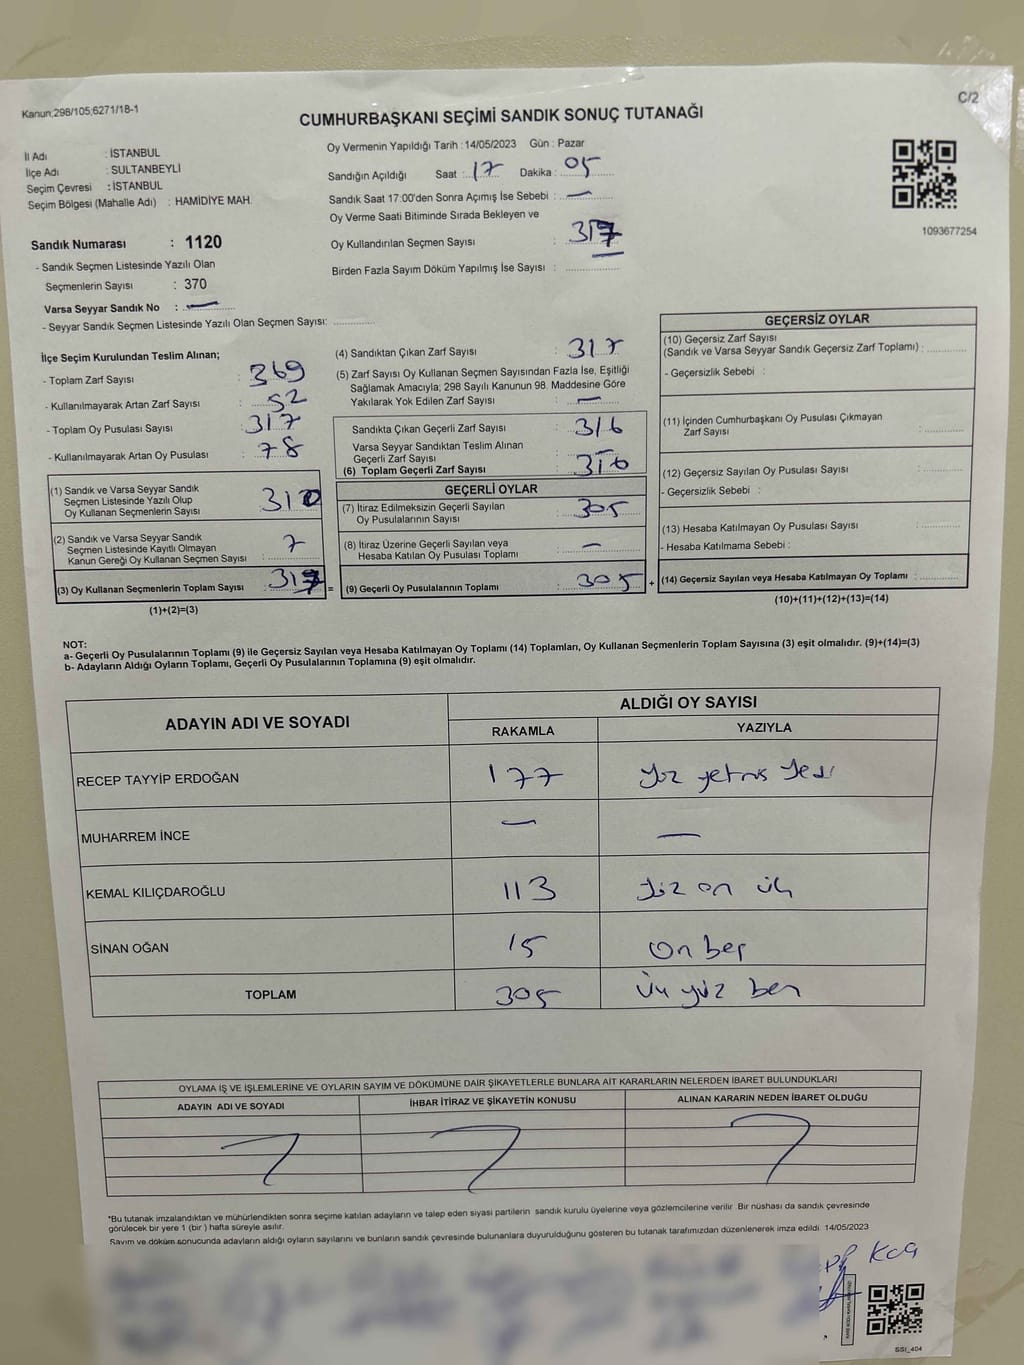 Kanun;298/105;6271/18-1
C/2
CUMHURBAŞKANI SEÇİMİ SANDIK SONUÇ TUTANAĞI
İl Adı : İSTANBUL
İlçe Adı : SULTANBEYLİ
Seçim Çevresi : İSTANBUL
Seçim Bölgesi (Mahalle Adı) : HAMİDİYE MAH.
Oy Vermenin Yapıldığı Tarih : 14/05/2023 Gün : Pazar
Sandığın Açıldığı Saat : 17 Dakika : 05
Sandık Saat 17:00'den Sonra Açımış İse Sebebi : —
Oy Verme Saati Bitiminde Sırada Bekleyen ve
Oy Kullandırılan Seçmen Sayısı : 317
Birden Fazla Sayım Döküm Yapılmış İse Sayısı :
1093677254
Sandık Numarası : 1120
- Sandık Seçmen Listesinde Yazılı Olan
Seçmenlerin Sayısı : 370
Varsa Seyyar Sandık No : —
- Seyyar Sandık Seçmen Listesinde Yazılı Olan Seçmen Sayısı:
İlçe Seçim Kurulundan Teslim Alınan;
- Toplam Zarf Sayısı : 369
- Kullanılmayarak Artan Zarf Sayısı : 52
- Toplam Oy Pusulası Sayısı : 317
- Kullanılmayarak Artan Oy Pusulası : 78
(1) Sandık ve Varsa Seyyar Sandık
Seçmen Listesinde Yazılı Olup
Oy Kullanan Seçmenlerin Sayısı : 310
(2) Sandık ve Varsa Seyyar Sandık
Seçmen Listesinde Kayıtlı Olmayan
Kanun Gereği Oy Kullanan Seçmen Sayısı : 7
(3) Oy Kullanan Seçmenlerin Toplam Sayısı : 317
(1)+(2)=(3)
(4) Sandıktan Çıkan Zarf Sayısı : 317
(5) Zarf Sayısı Oy Kullanan Seçmen Sayısından Fazla İse, Eşitliği
Sağlamak Amacıyla; 298 Sayılı Kanunun 98. Maddesine Göre
Yakılarak Yok Edilen Zarf Sayısı : —
Sandıkta Çıkan Geçerli Zarf Sayısı : 316
Varsa Seyyar Sandıktan Teslim Alınan
Geçerli Zarf Sayısı :
(6) Toplam Geçerli Zarf Sayısı : 316
GEÇERLİ OYLAR
(7) İtiraz Edilmeksizin Geçerli Sayılan
Oy Pusulalarının Sayısı : 305
(8) İtiraz Üzerine Geçerli Sayılan veya
Hesaba Katılan Oy Pusulası Toplamı : —
= (9) Geçerli Oy Pusulalarının Toplamı : 305 +
GEÇERSİZ OYLAR
(10) Geçersiz Zarf Sayısı
(Sandık ve Varsa Seyyar Sandık Geçersiz Zarf Toplamı) :
- Geçersizlik Sebebi :
(11) İçinden Cumhurbaşkanı Oy Pusulası Çıkmayan
Zarf Sayısı :
(12) Geçersiz Sayılan Oy Pusulası Sayısı :
- Geçersizlik Sebebi :
(13) Hesaba Katılmayan Oy Pusulası Sayısı :
- Hesaba Katılmama Sebebi :
(14) Geçersiz Sayılan veya Hesaba Katılmayan Oy Toplamı :
(10)+(11)+(12)+(13)=(14)
NOT:
a- Geçerli Oy Pusulalarının Toplamı (9) ile Geçersiz Sayılan veya Hesaba Katılmayan Oy Toplamı (14) Toplamları, Oy Kullanan Seçmenlerin Toplam Sayısına (3) eşit olmalıdır. (9)+(14)=(3)
b- Adayların Aldığı Oyların Toplamı, Geçerli Oy Pusulalarının Toplamına (9) eşit olmalıdır.
ADAYIN ADI VE SOYADI
ALDIĞI OY SAYISI
RAKAMLA YAZIYLA
RECEP TAYYİP ERDOĞAN 177 Yüz yetmiş Yedi
MUHARREM İNCE — —
KEMAL KILIÇDAROĞLU 113 Yüz on üç
SİNAN OĞAN 15 On beş
TOPLAM 305 Üç yüz beş
OYLAMA İŞ VE İŞLEMLERİNE VE OYLARIN SAYIM VE DÖKÜMÜNE DAİR ŞİKAYETLERLE BUNLARA AİT KARARLARIN NELERDEN İBARET BULUNDUKLARI
ADAYIN ADI VE SOYADI İHBAR İTİRAZ VE ŞİKAYETİN KONUSU ALINAN KARARIN NEDEN İBARET OLDUĞU
*Bu tutanak imzalandıktan ve mühürlendikten sonra seçime katılan adayların ve talep eden siyasi partilerin sandık kurulu üyelerine veya gözlemcilerine verilir. Bir nüshası da sandık çevresinde
görülecek bir yere 1 (bir ) hafta süreyle asılır.
Sayım ve döküm sonucunda adayların aldığı oyların sayılarını ve bunların sandık çevresinde bulunanlara duyurulduğunu gösteren bu tutanak tarafımızdan düzenlenerek imza edildi. 14/05/2023
SSI_404